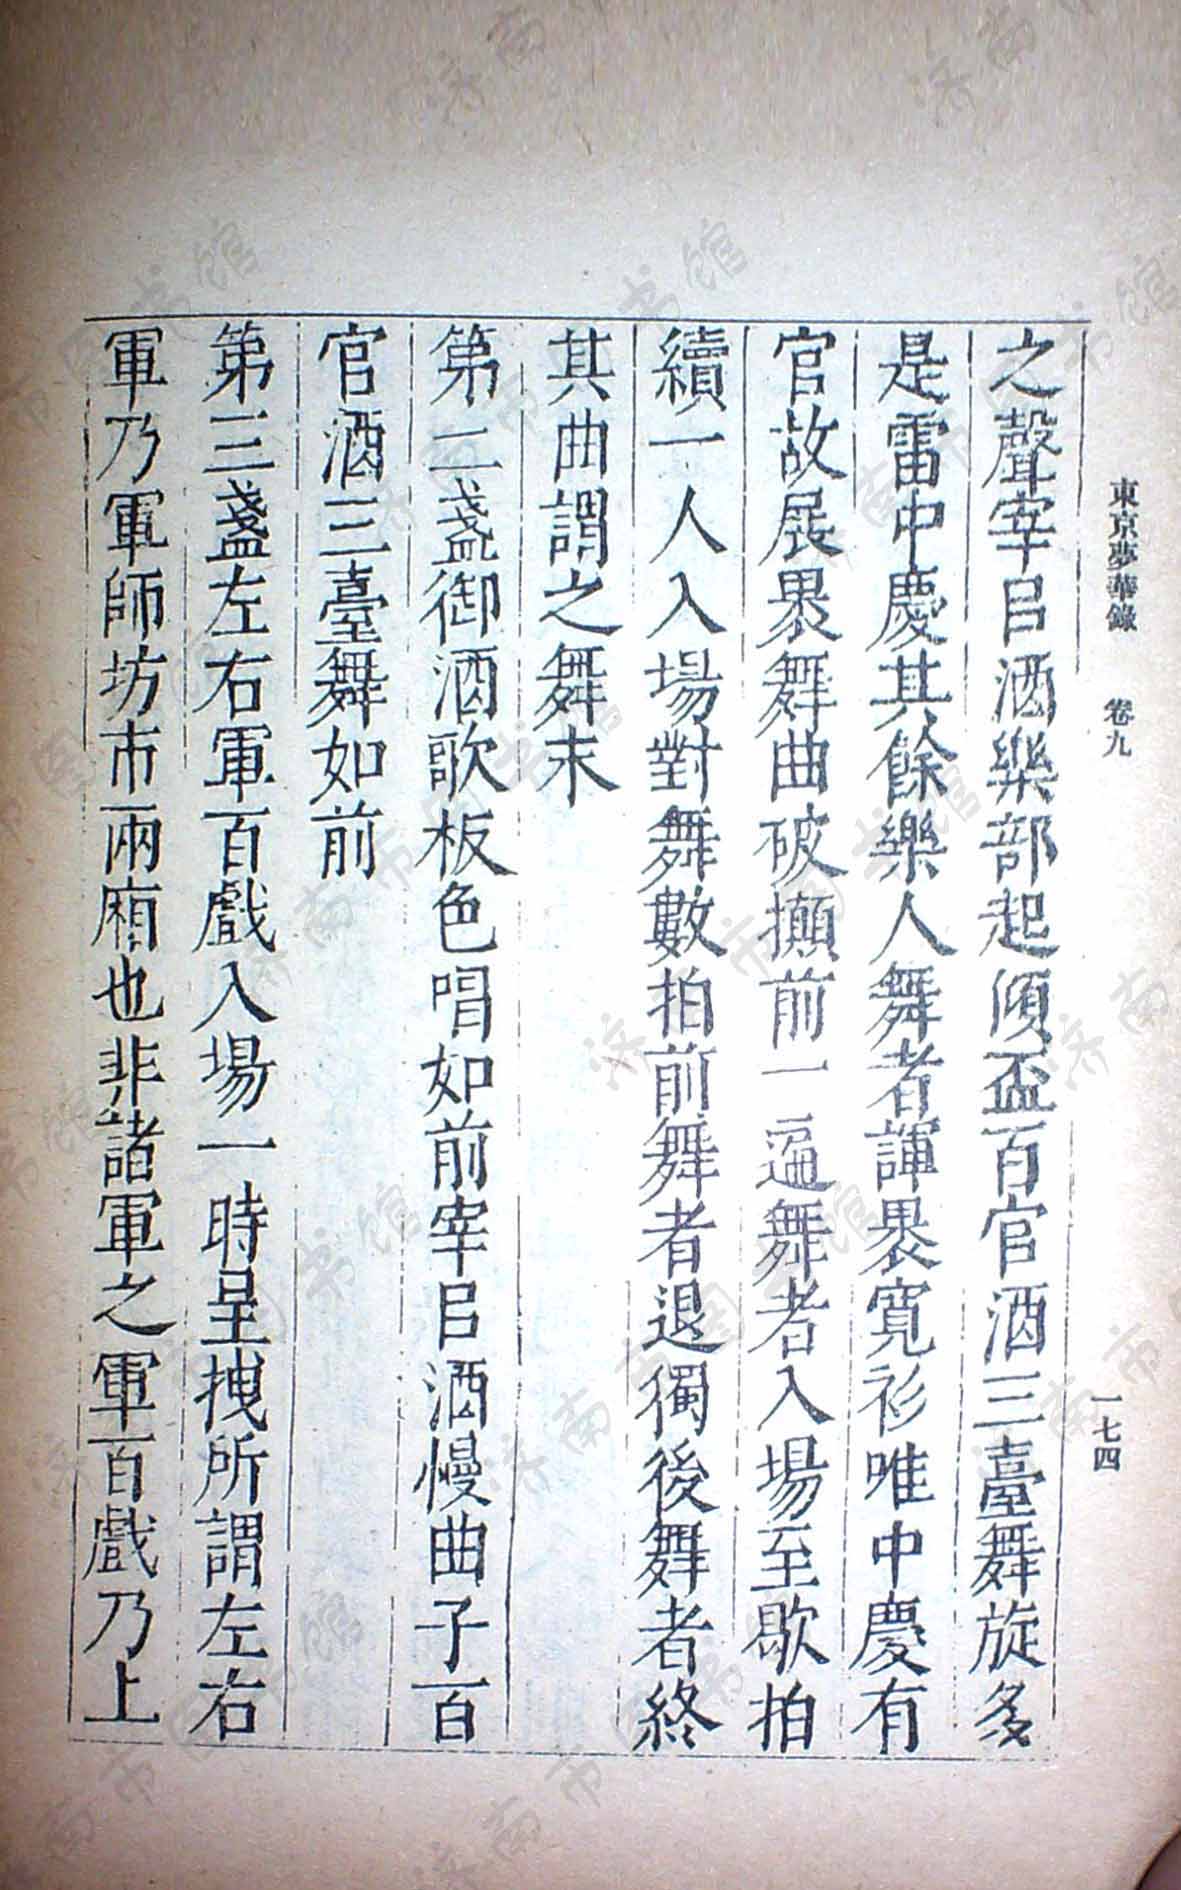 東京夢華錄 卷九 一七四
之聲宰臣酒樂部起傾盃百官酒三臺舞旋多
是雷中慶其餘樂人舞者諢裹寬衫唯中慶有
官故展裹舞曲破攧前一遍舞者入場至歇拍
續一人入場對舞數拍前舞者退獨後舞者終
其曲謂之舞末
第二盞御酒歌板色唱如前宰臣酒慢曲子百
官酒三臺舞如前
第三盞左右軍百戲入場一時呈拽所謂左右
軍乃軍師坊市兩廂也非諸軍之軍百戲乃上
济南市图书馆